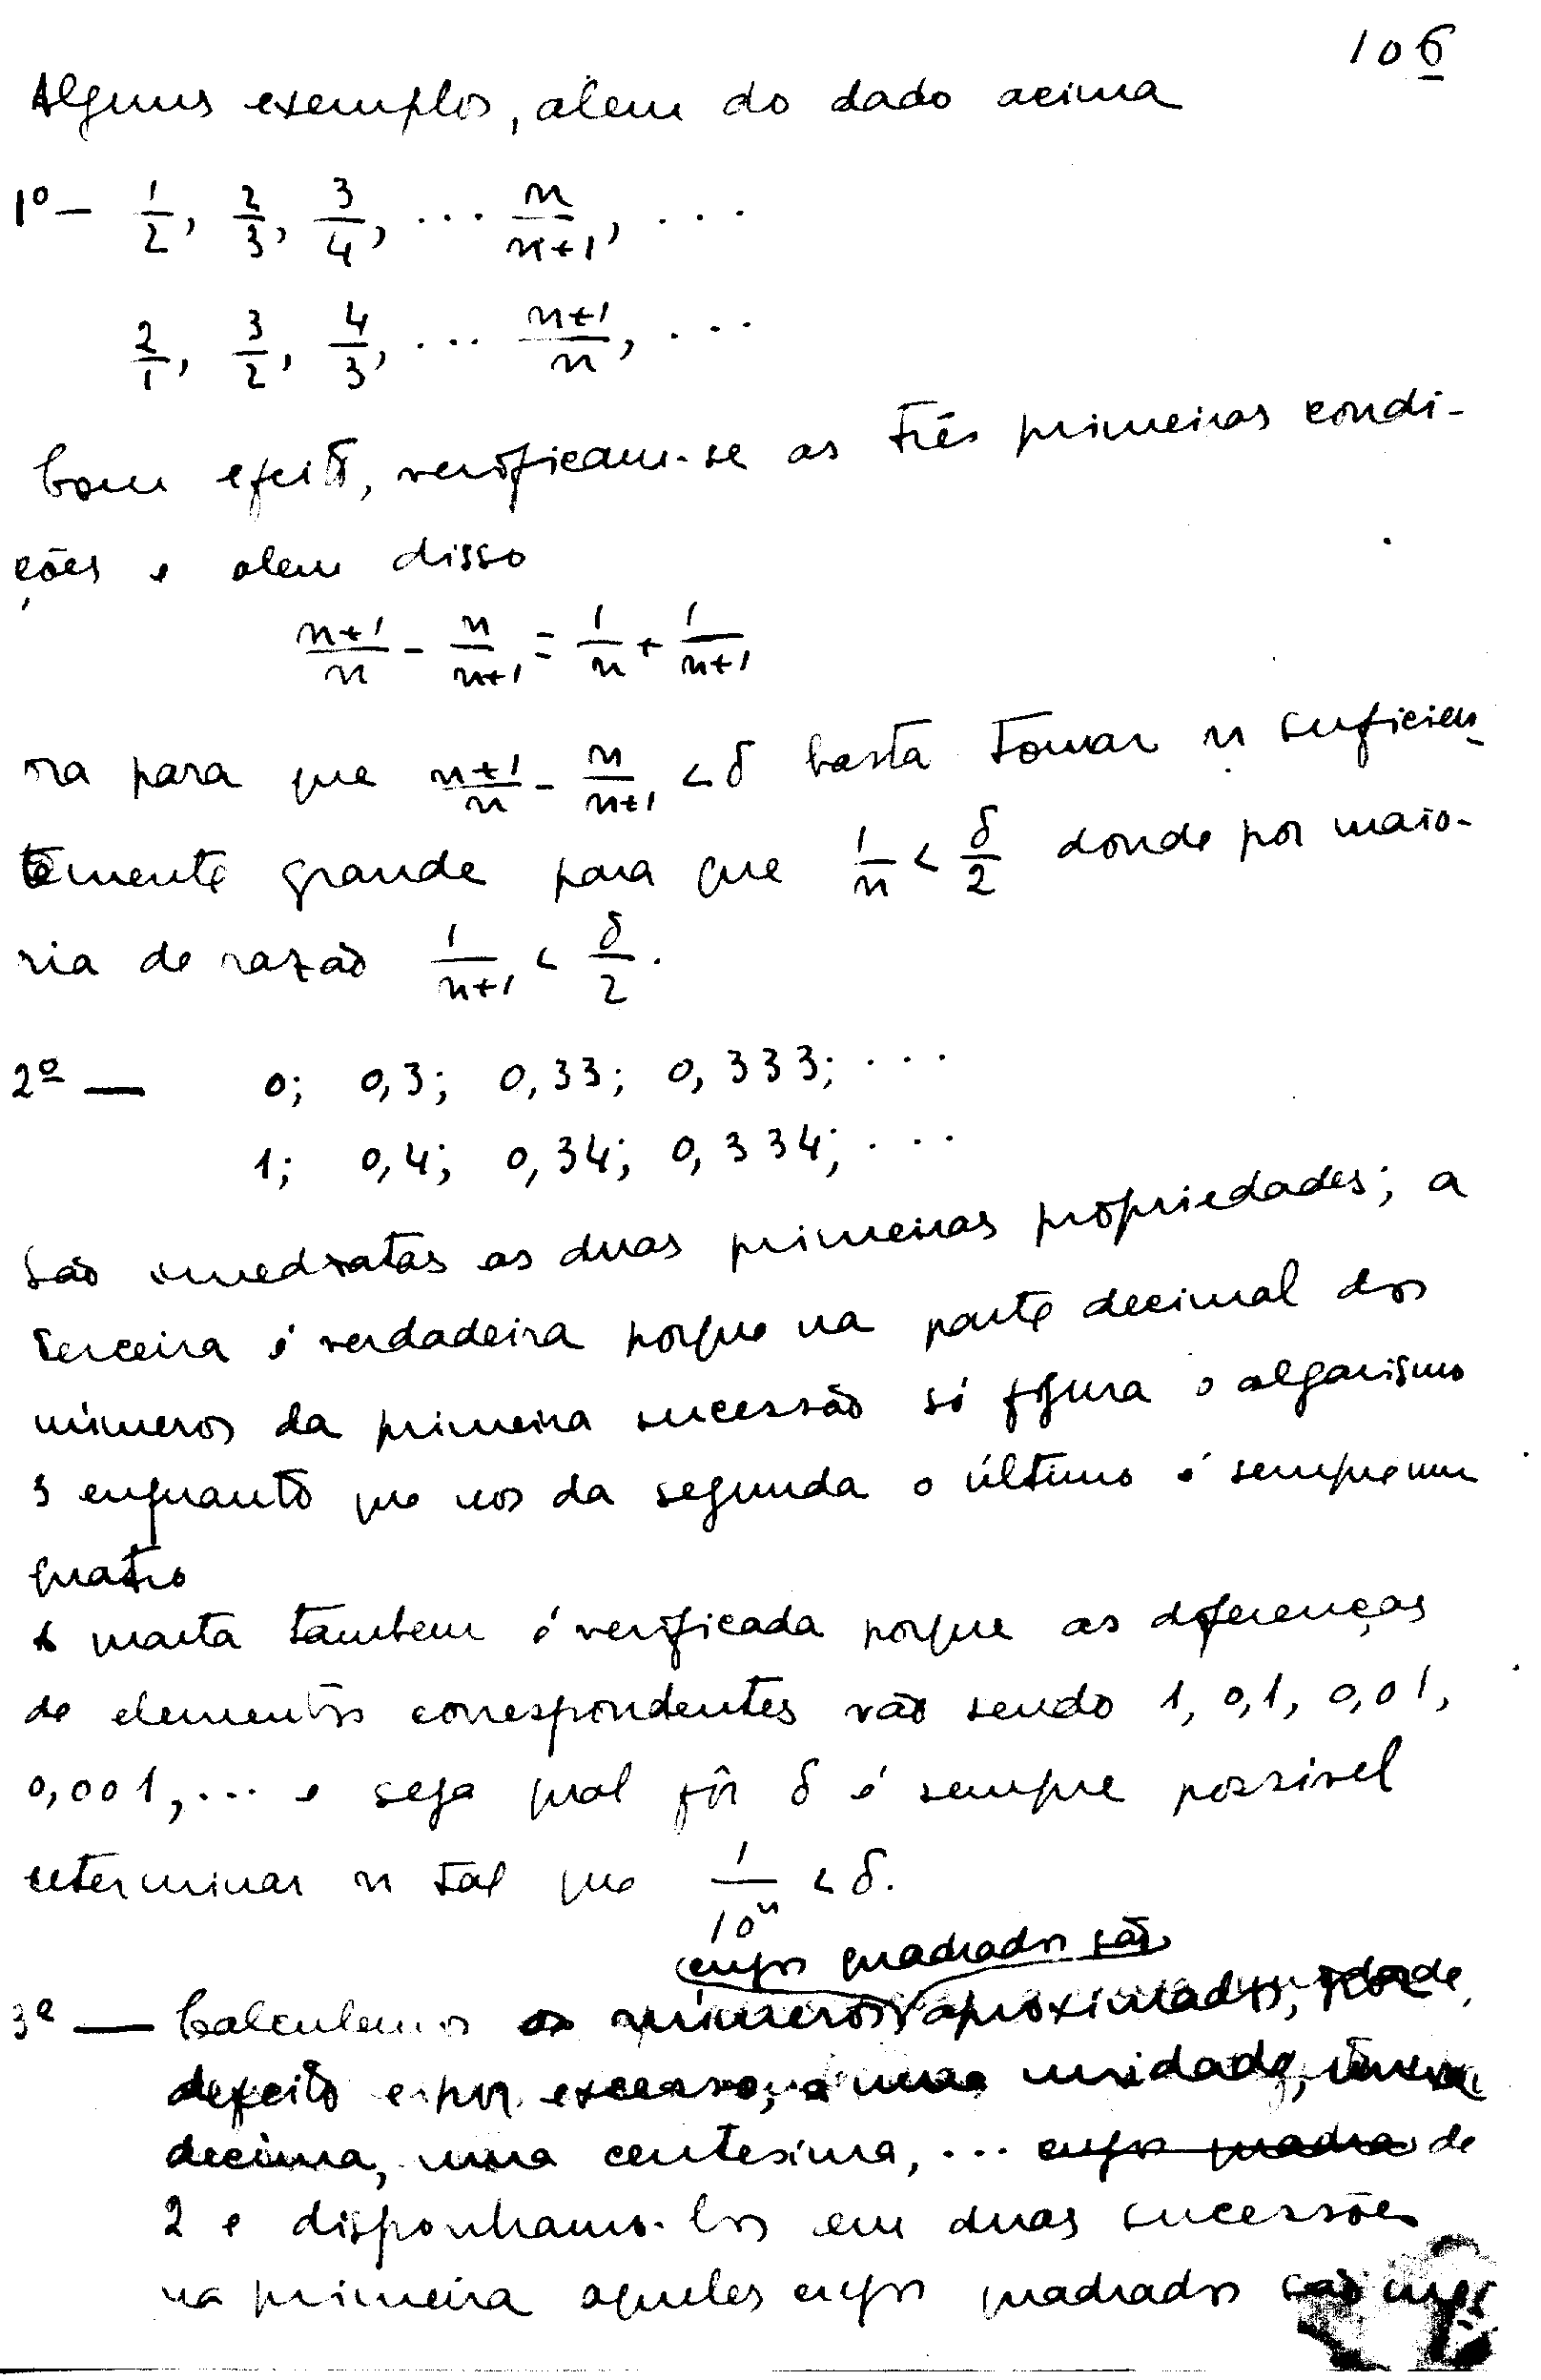 106
Alguns exemplos, alem do dado acima
1º — 1/2, 2/3, 3/4, ... n/n+1, ...
2/1, 3/2, 4/3, ... n+1/n, ...
Com efeito, verificam-se as três primeiras condi-
ções e alem disso
n+1/n - n/n+1 = 1/n + 1/n+1
ora para que n+1/n - n/n+1 < δ basta tomar n suficien-
temente grande para que 1/n < δ/2 donde por maio-
ria de razão 1/n+1 < δ/2.
2º — 0; 0,3; 0,33; 0,333; ...
1; 0,4; 0,34; 0,334; ...
São imediatas as duas primeiras propriedades; a
terceira é verdadeira porque na parte decimal dos
números da primeira sucessão só figura o algarismo
3 enquanto que nos da segunda o último é sempre um
quatro
A quarta tambem é verificada porque as diferenças
de elementos correspondentes vão sendo 1, 0,1, 0,01,
0,001, ... e seja qual fôr δ é sempre possivel
determinar n tal que 1/10ⁿ < δ.
cujos quadrados são
3º — Calculemos os números aproximados, por
defeito e por excesso, a uma unidade, uma
decima, uma centesima, ... cujos quadra de
2 e disponhamo-los em duas sucessões
na primeira aqueles cujos quadrados são